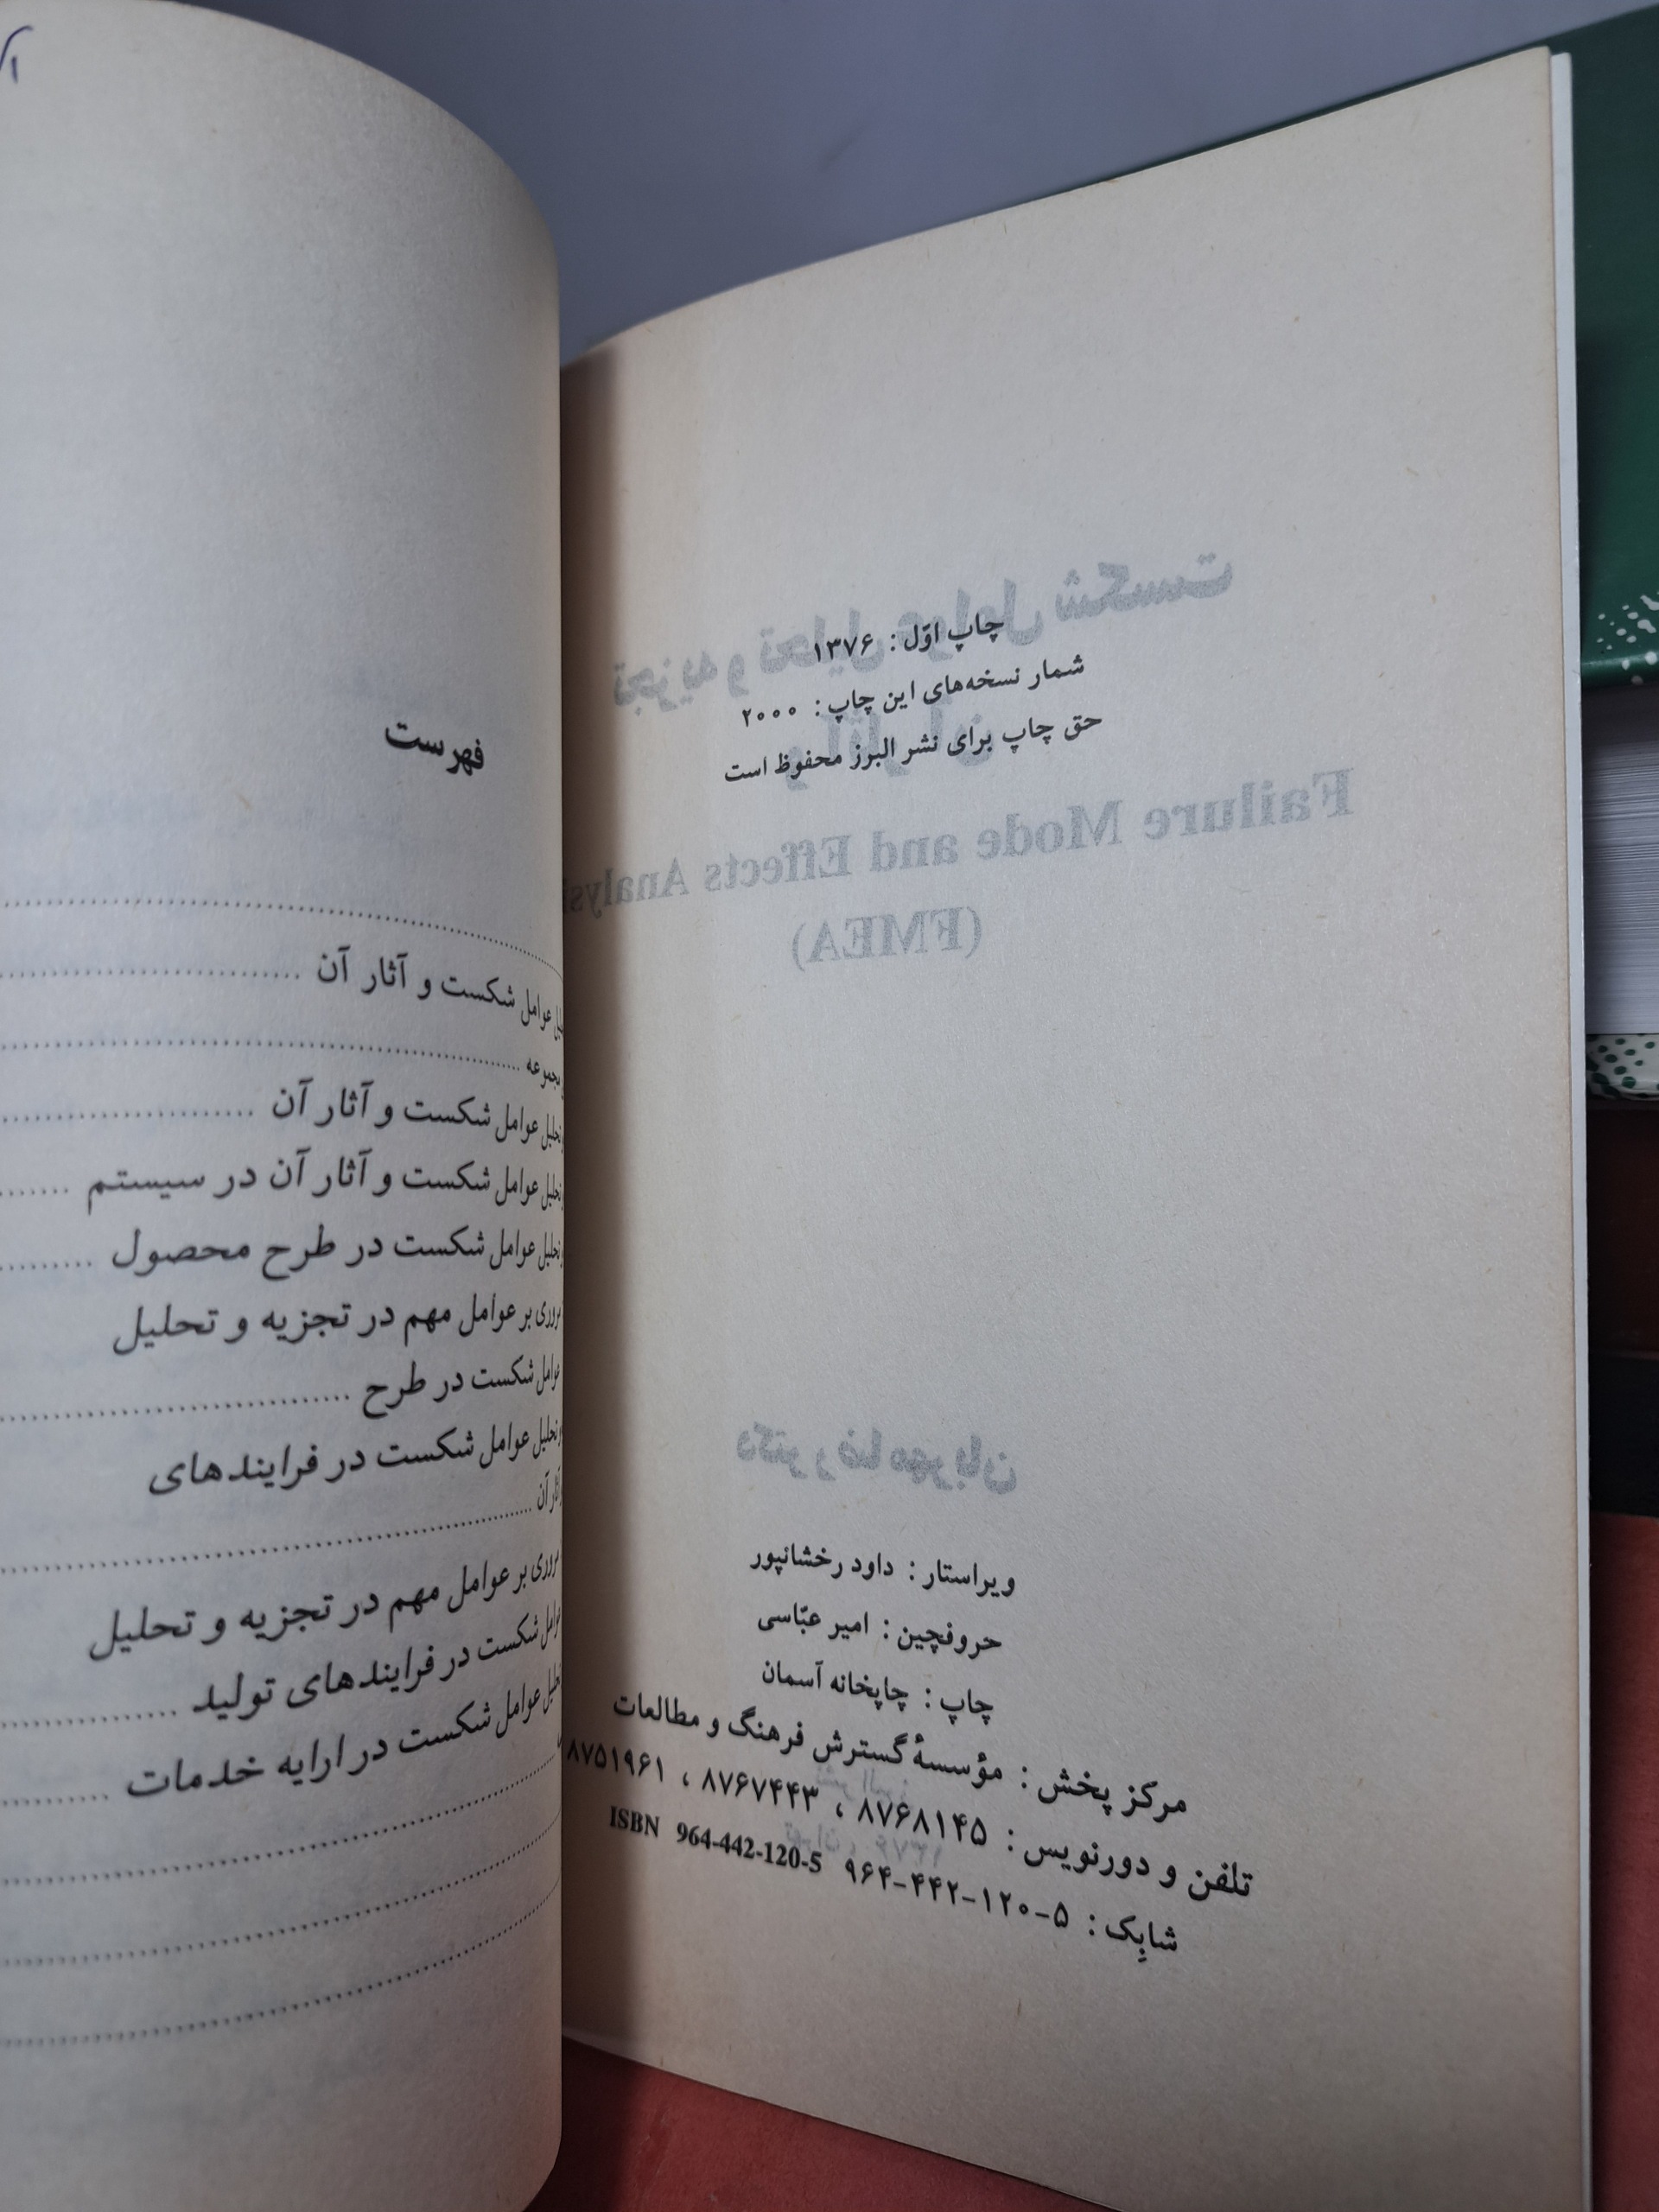 چاپ اوّل: ۱۳۷۶
شمار نسخه‌های این چاپ: ۲۰۰۰
حق چاپ برای نشر البرز محفوظ است
تجزیه و تحلیل عوامل شکست
و آثار آن
Failure Mode and Effects Analysi
(FMEA)
دکتر رضا مهربان
ویراستار: داود رخشانپور
حروفچین: امیر عبّاسی
چاپ: چاپخانه آسمان
مرکز پخش: مؤسسهٔ گسترش فرهنگ و مطالعات
تلفن و دورنویس: ۸۷۶۸۱۴۵ ، ۸۷۶۷۴۴۳ ، ۸۷۵۱۹۶۱
شابِک: ۵-۱۲۰-۴۴۲-۹۶۴ ISBN 964-442-120-5
نشر البرز
تهران، ۱۳۷۶
فهرست
عوامل شکست و آثار آن
مجموعه
تحلیل عوامل شکست و آثار آن
تحلیل عوامل شکست و آثار آن در سیستم
تحلیل عوامل شکست در طرح محصول
مروری بر عوامل مهم در تجزیه و تحلیل
عوامل شکست در طرح
و تحلیل عوامل شکست در فرایندهای
آثار آن
مروری بر عوامل مهم در تجزیه و تحلیل
عوامل شکست در فرایندهای تولید
تحلیل عوامل شکست در ارایه خدمات